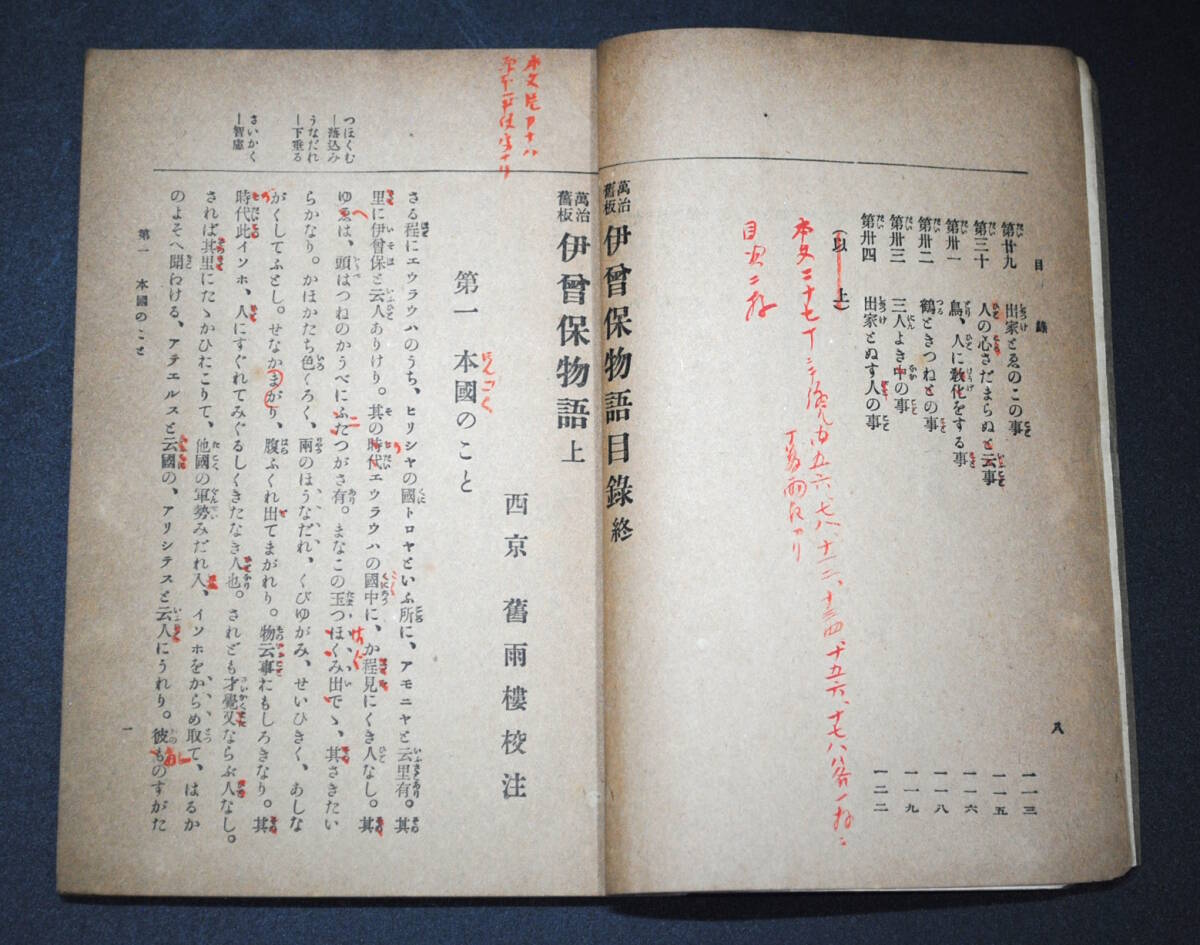 目錄
第廿九 出家とゑのこの事 一一三
第三十 人の心さだまらぬと云事 一一五
第卅一 鳥、人に敎化をする事 一一六
第卅二 鶴ときつねとの事 一一八
第卅三 三人よき中の事 一一九
第卅四 出家とぬす人の事 一二二
(以上)
目次二
萬治舊板 伊曾保物語目錄終
八
萬治舊板 伊曾保物語上
西京 舊雨樓校注
第一 本國のこと
さる程にエウラウハのうち、ヒリシヤの國トロヤといふ所に、アモニヤと云里有。其
里に伊曾保と云人ありけり。其の時代エウラウハの國中に、か程見にくき人なし。其
ゆゑは、頭はつねのかうべにふたつがさ有。まなこの玉つほくみ出でゝ、其さきたい
らかなり。かほかたち色くろく、兩のほうなだれ、くびゆがみ、せいひきく、あしな
がくしてふとし。せなかまがり、腹ふくれ出てまがれり。物云事にもしろきなり。其
時代此イソホ、人にすぐれてみぐるしくきたなき人也。されども才覺又ならぶ人なし。
されば其里にたゝかひおこりて、他國の軍勢みだれ入、イソホをからめ取て、はるか
のよそへ聞わける、アテエルスと云國の、アリシテスと云人にうれり。彼ものすがた
つほくむ
―落込み
うなだれ
―下垂る
さいかく
―智慮
第一 本國のこと
一